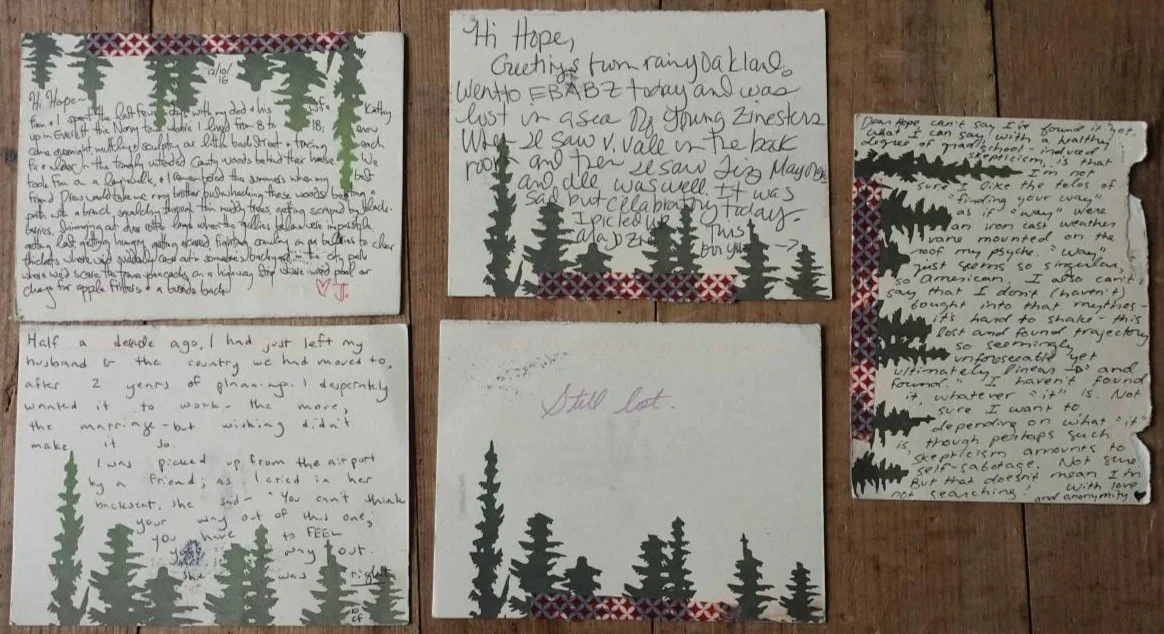 12/10/16
Hi Hope—
the last few days with my dad & his wife Kathy
up in Everett the Navy town where I lived from 8 to 18;
Fir & alder in the County woods behind their house. We
took Finn on a & I remembered the summers when my best
friend Drew would take me
path with a branch through the muddy trees getting scraped by black-
berries, over rotten logs when the gullies below
getting lost getting hungry getting scared fighting
thickets where we'd suddenly come out in someone's backyard
where we'd on a highway strip where we'd pool our
change for apple fritters & a back.
♡ J.
Hi Hope,
Greetings from rainy Oakland.
Went to EBABZ today and was
lost in a sea of young zinesters
When I saw V. Vale in the back
room and then I saw Liz Mayorga
and all was well. It was
sad but celebratory today.
I picked up This
a zine for you →
Dear Hope, can't say I've found it yet.
what I can say, with a healthy
degree of grad-school-induced
skepticism, is that
I'm not
sure I like the telos of
"finding your way"
as if "way" were
an iron cast weather
vane mounted on the
roof my psyche. "Way"
just seems so singular,
so American. I also can't
say that I don't (haven't)
bought into that mythos—
it's hard to shake—this
lost and found trajectory
so seemingly
unforseeable yet
ultimately linear → and
found." I haven't found
it, whatever "it" is. Not
sure I want to,
depending on what "it"
is, though perhaps such
skepticism amounts to
self-sabotage. Not sure.
But that doesn't mean I'm
not searching, with love
and anonymity ♥
Half a decade ago, I had just left my
husband & the country we had moved to,
after 2 years of planning. I desperately
wanted it to work - the move,
the marriage - but wishing didn't
make it so.
I was picked up from the airport
by a friend; as I cried in her
backseat, she said - "You can't think
your way out of this one,
you have to FEEL
your way out.
She was right.
CF
Still lost.